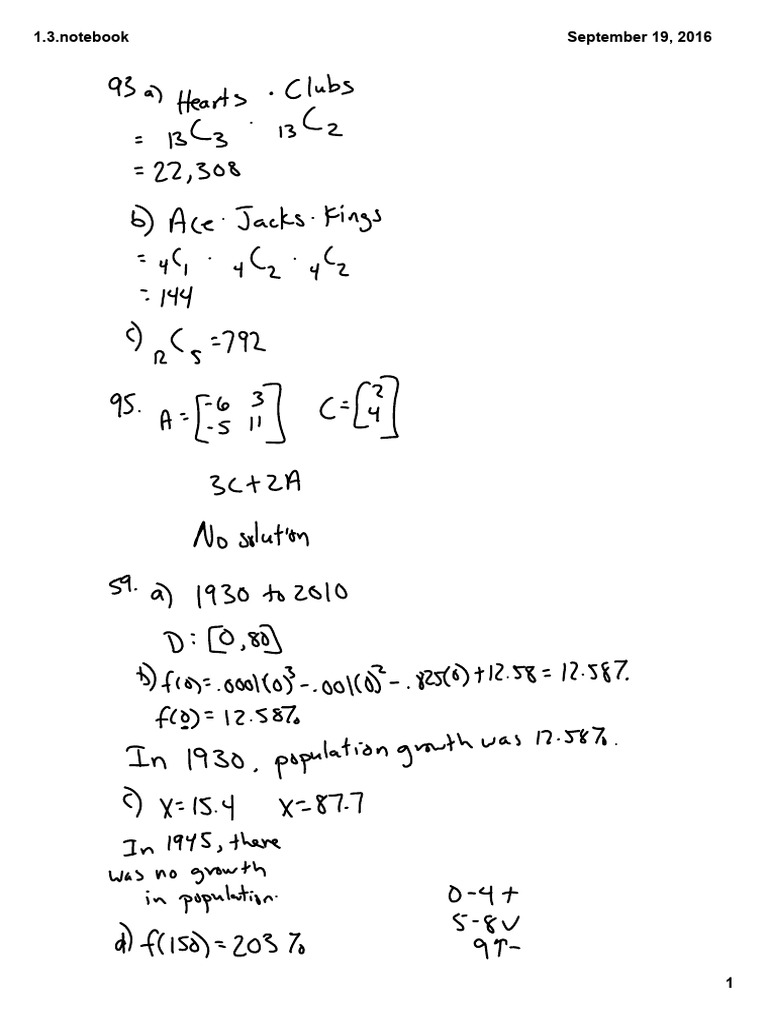 1.3.notebook September 19, 2016
93 a) Hearts · Clubs
= 13C3 · 13C2
= 22,308
b) Ace · Jacks · Kings
= 4C1 · 4C2 · 4C2
= 144
c) 12C5 = 792
95. A = [-6 3 -5 11] C = [2 4]
3C + 2A
No solution
59. a) 1930 to 2010
D: [0,80]
b) f(0) = .0001(0)³ - .001(0)² - .825(0) + 12.58 = 12.58%
f(0) = 12.58%
In 1930, population growth was 12.58%.
c) X=15.4 X=87.7
In 1945, there
was no growth
in population.
0-4 +
5-8 ✓
9↑ -
d) f(150) = 203%
1